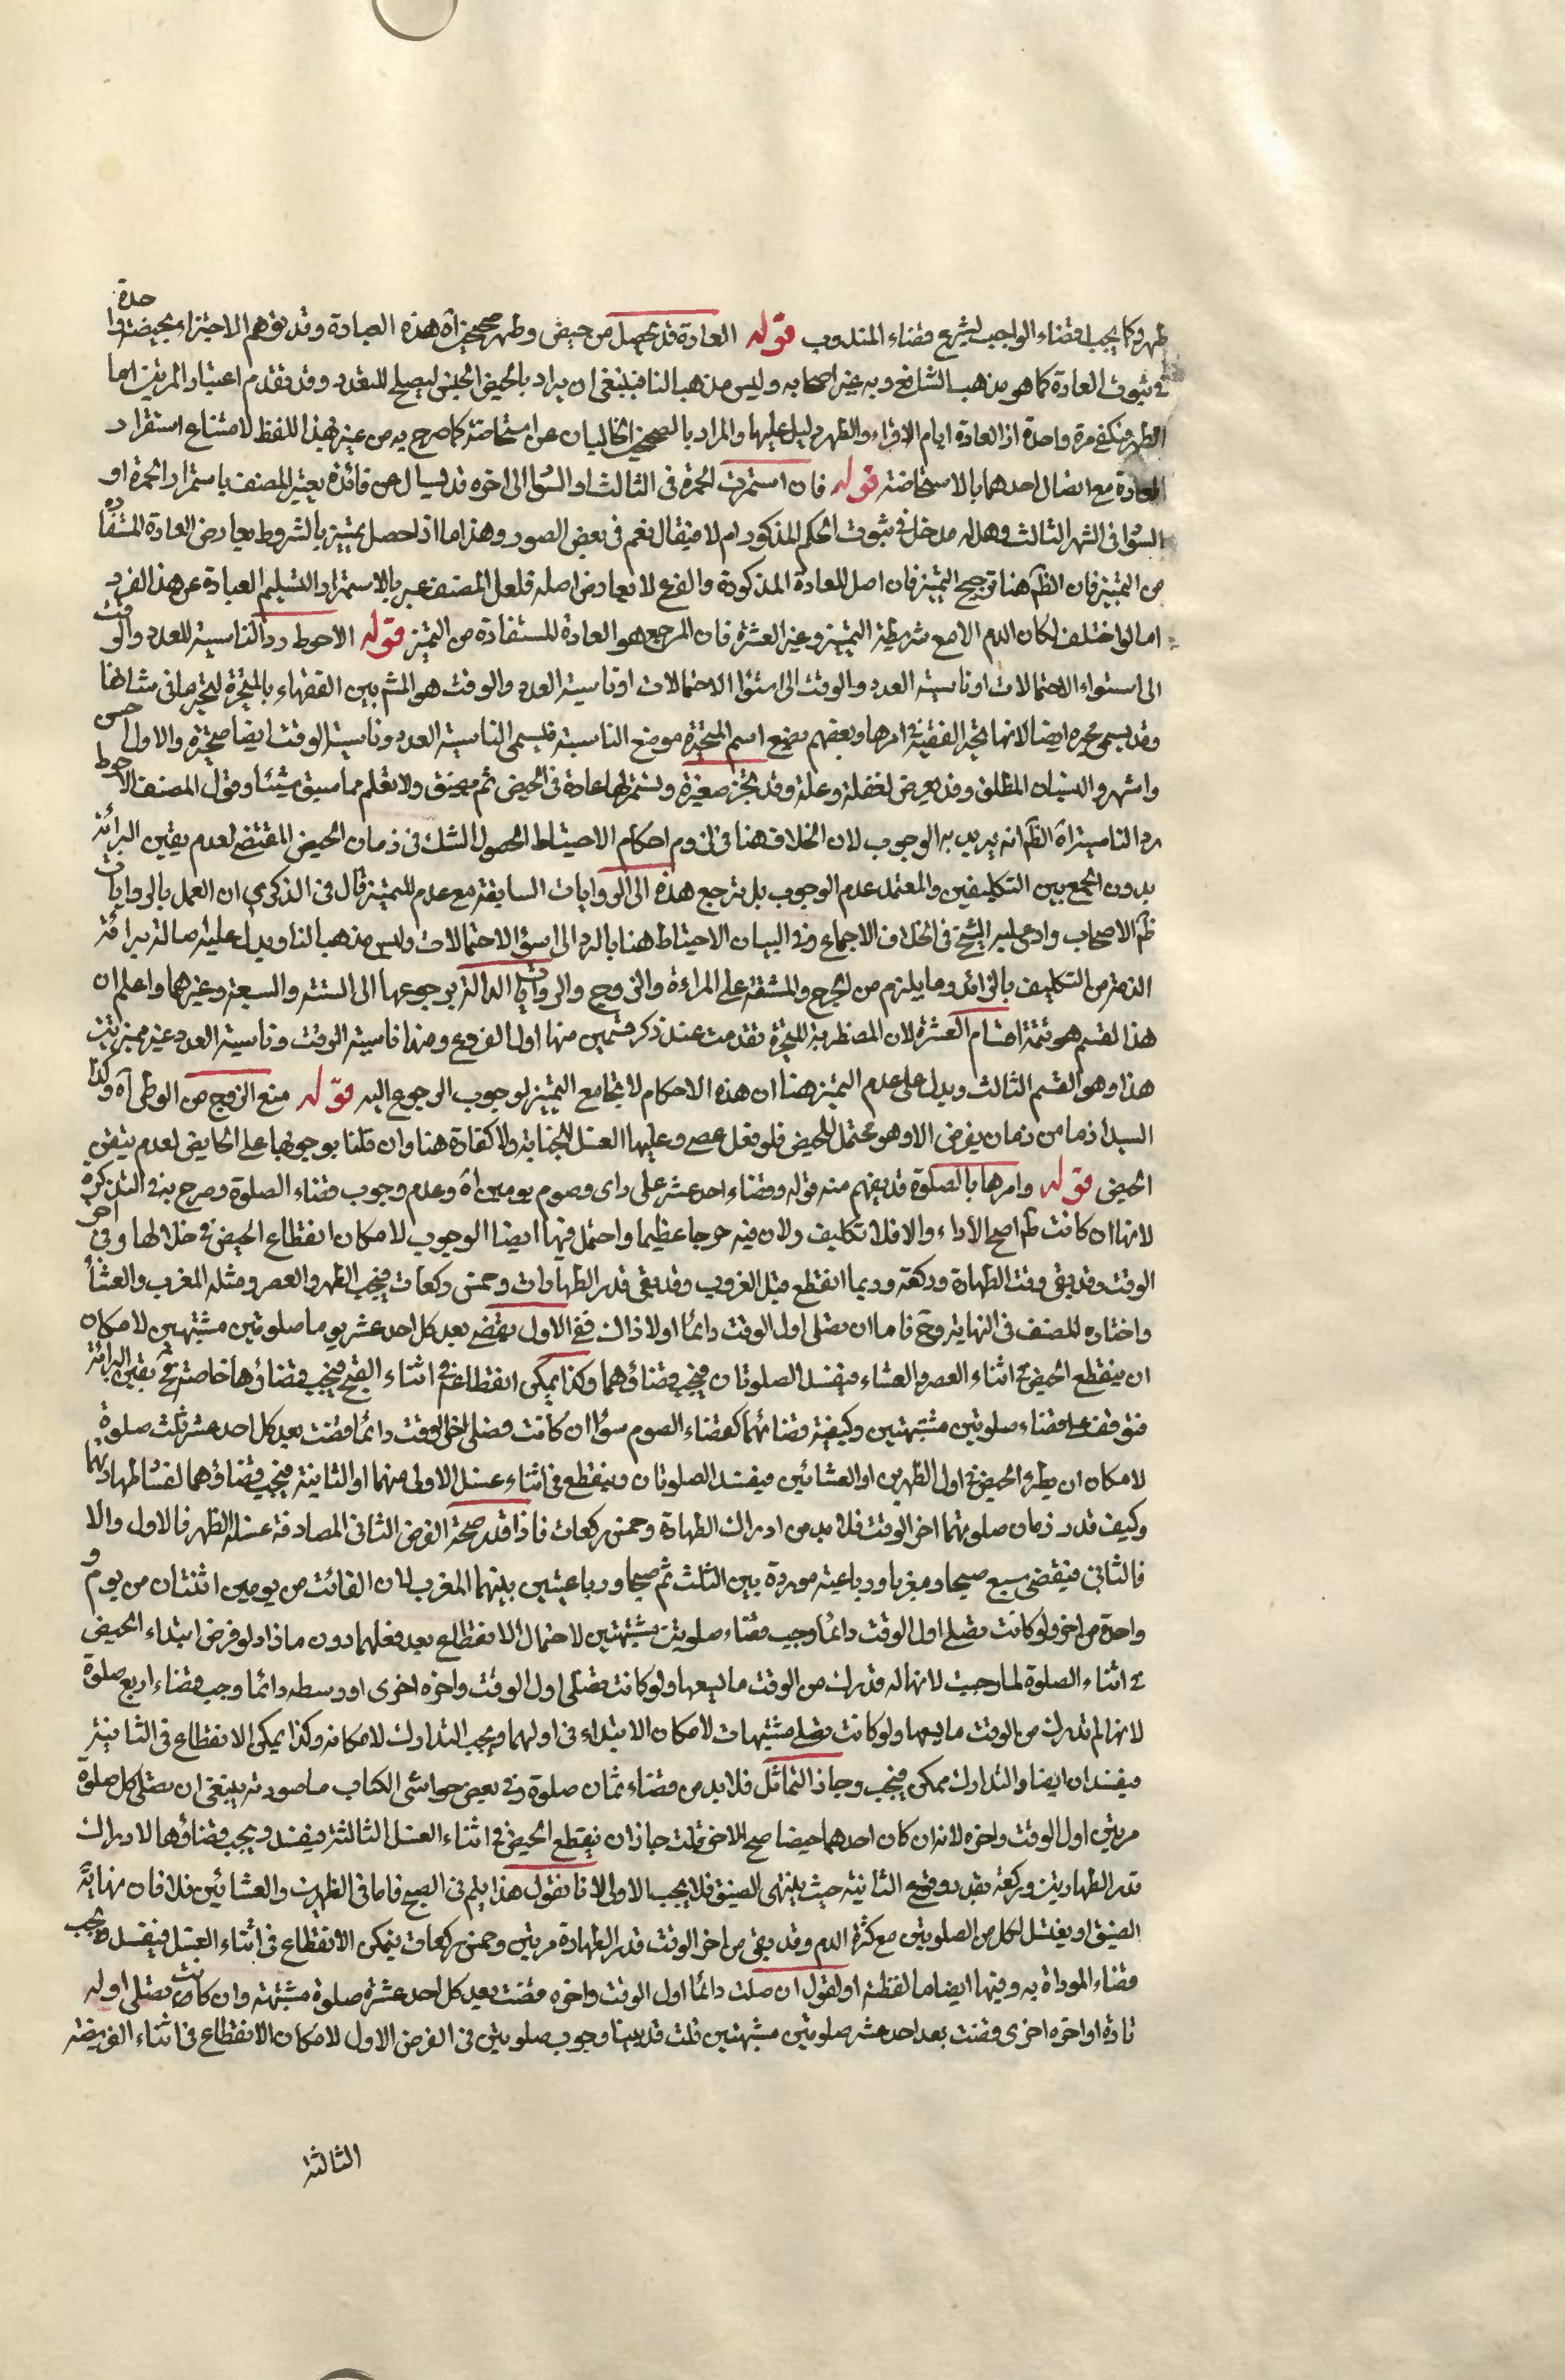 طهر وكما يجب قضاء الواجب يشرع قضاء المندوب قوله العادة قد تحصل من حيض وطهر صحيحين آه هذه العبادة وقد توهم الاجتزاء بحيضة واحدة
في ثبوت العادة كما هو مذهب الشافعي وبه غير اصحابه وليس مذهبا لنا فينبغي ان يراد بالحيض الجنس ليصلح للتعدد وقد تقدم اعتبار المرتين اما
الطهر فيكفي مرة واحدة اذ العادة ايام الاقراء والطهر دليل عليها والمراد بالصحيحين الخاليان عن استحاضة كما صرح به من عبر بهذا اللفظ لامتناع استقرار
العادة مع اتصال احدهما بالاستحاضة قوله فان استمرت الحمرة في الثالث او السوا الى اخره قد يسال عن فائدة تعبير المصنف باستمرار الحمرة او
السوا في الشهر الثالث وهل له مدخل في ثبوت الحكم المذكور ام لا فيقال نعم في بعض الصور وهذا ما اذا حصل تمييز بالشروط يعارض العادة المستفادة
من التمييز فان الظ هنا ترجيح التمييز فان اصل للعادة المذكودة والفرع لا يعارض اصله فلعل المصنف عبر بالاستمرار لتسليم العبادة عن هذا الفرد
اما لو اختلف لكان الدم الامع شريطة التمييز وعبر العشرة فان المرجع هو العادة المستفادة من التميز قوله الاحوط رد الناسية للعدد والوقت
الى اسوء الاحتمالات او ناسية العدد والوقت الى اسوا الاحتمالات او ناسية العدد والوقت هو المش بين الفقهاء بالمتحيرة لتحيرها في شانها
وقد يسمى محيره ايضا لانها تحير الفقيه في امرها وبعضهم يضع اسم المتحيرة موضع الناسية فيسمى الناسية العدد وناسية الوقت ايضا متحيرة والاول احسن
واشهر والنسيان المطلق وقد يعرض لغفلة وعلة وقد تجن صغيرة وتستمر لها عادة في الحيض ثم تفيق ولا تعلم مما سبق شيئا وقول المصنف الاحوط
رد الناسية آه الظ انه يريد به الوجوب لان الخلاف هنا في لزوم احكام الاحتياط لحصول الشك في زمان الحيض المقتضي لعدم يقين البرائة
بدون الجمع بين التكليفين والمعتمد عدم الوجوب بل ترجع هذه الى الروايات السابقة مع عدم التمييز قال في الذكرى ان العمل بالروايات
ظ الاصحاب وادعى عليه الشيخ في الخلاف الاجماع وفي البيان الاحتياط هنا بالرد الى اسؤ الاحتمالات وليس مذهبا لنا ويدل عليه اصالة برائة
الذمة من التكليف بالزائد وما يلزم من الحرج والمشقة على المراءة والزوج والروايات الدالة برجوعها الى الستة والسبعة وغيرهما واعلم ان
هذا القسم هو تتمة اقسام العشرة لان المضطربة المتحيرة تقدمت عند ذكر قسمين منها اول الفروع ومنها ناسية الوقت وناسية العدد غير مميزتين
هذا وهو القسم الثالث ويدل على عدم التميز هنا ان هذه الاحكام لا تجامع التمييز لوجوب الرجوع اليه قوله منع الزوج من الوطى آه وكذا
السيد اذ ما من زمان يفرض الا وهو محتمل للحيض فلو فعل عصى وعليها الغسل للجنابة ولا كفارة هنا وان قلنا بوجوبها على الحايض لعدم تيقن
الحيض قوله وامرها بالصلوة قد يفهم منه قوله وقضاء احد عشر على راى وصوم يومين آه وعدم وجوب قضاء الصلوة وصرح به في التذكرة
لانها ان كانت طاهرا صح الاداء والا فلا تكليف ولان فيه حرجا عظيما واحتمل فيها ايضا الوجوب لامكان انقطاع الحيض في خلالها وفي اخر
الوقت وقد بقى وقت الطهارة وركعة وربما انقطع قبل الغروب وقد بقى قدر الطهارات وخمس ركعات فيجب الظهر والعصر ومثله المغرب والعشا
واختاره المصنف في النهاية وح فاما ان تصلى اول الوقت دائما اولا ذاك ففي الاول تقضى بعد كل احد عشر يوما صلوتين مشتبهين لامكان
ان ينقطع الحيض في اثناء العصر والعشاء فيفسد الصلوتان فيجب قضاؤهما وكذا يمكن انقطاعه في اثناء الصبح فيجب قضاؤها خاصة ح يقين البرائة
فتوقف على قضاء صلوتين مشتبهتين وكيفية قضائهما كقضاء الصوم سوا ان كانت فصلى اخر الوقت دائما قضت بعد كل احد عشر ثلث صلوة
لامكان ان يطرء الحيض في اول الظهرين او العشائين فيفسد الصلوتان وينقطع في اثناء غسل الاولى منهما او الثانية فيجب قضاؤهما لفسا طهارتهما
وكيف قدر زمان صلوتهما اخر الوقت فلا بد من ادراك الطهارة وخمس ركعات فاذا قدر صحة الفرض الثاني المصادفة غسل الظهر فالاول والا
فالثاني فيقضى سبع صبحا ومغربا ورباعية موردة بين الثلث ثم صبحا ورباعيتين بينهما المغرب لان الفائت من يومين اثنتان من يوم و
واحدة من اخر ولو كانت تصلى اول الوقت دائما وجب قضاء صلوتين مشتبهتين لاحتمال الانقطاع بعد فعلهما دون ما زاد لو فرض ابتداء الحيض
في اثناء الصلوة لما وجبت لانها لم تدرك من الوقت ما يسعها ولو كانت تصلى اول الوقت واخره اخرى او وسطه دائما وجب قضاء اربع صلوة
لانها لم تدرك من الوقت ما يسعها ولو كانت تصلى مشتبهات لامكان الابتداء في اولهما ويجب التدارك لامكانه وكذا يمكن الانقطاع في الثانية
فيفسدان ايضا والتدارك ممكن فيجب وجاز التماثل فلا بد من قضاء ثمان صلوة وفي بعض حواشى الكتاب ما صورته ينبغى ان تصلى كل صلوة
مرتين اول الوقت واخره لانه ان كان احدهما حيضا صح الاخر قلت جاز ان ينقطع الحيض في اثناء الغسل الثالثة فيفسد ويجب قضاؤها لادراك
قدر الطهارتين وركعة بقدر وقوع الثانية حيث ينتهى الضيق فلا يجب الاولى لانا نقول هذا يتم في الصبح فاما في الظهرين والعشائين فلا فان نهاية
الضيق او يغتسل لكل من الصلوتين مع كثرة الدم وقد بقى من اخر الوقت قدر الطهارة مرتين وخمس ركعات فيمكن الانقطاع في اثناء الغسل فيفسد ويجب
قضاء المؤداة به وفيها ايضا ما لفظته او لقول ان صلت دائما اول الوقت واخره قضت بعد كل احد عشرة صلوة مشتبهة وان كانت تصلى اوله
تارة او اخره اخرى قضت بعد احد عشر صلوتين مشتبهتين قلت قد بينا وجوب صلوتين في الفرض الاول لامكان الانقطاع في اثناء الفريضة
الثالثة